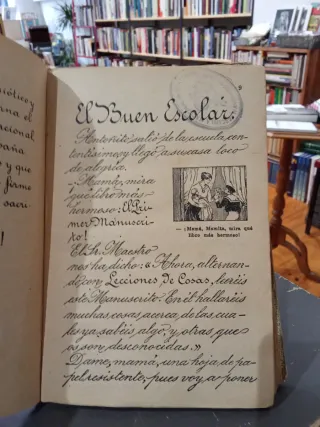 ciótico y
rna el
acional
paña
y que
firme
sacri-
El Buen Escolar.
Antoñito, salió de la escuela con-
tentísimo, y llegó a su casa loco
de alegría.
—Mamá, mira
qué libro más
hermoso: ¡El Pri-
mer Manuscri-
to!
— ¡Mamá, Mamita, mira qué
libro más hermoso!
El Sr. Maestro
nos ha dicho: «Ahora, alternan-
do con Lecciones de Cosas, leeréis
este Manuscrito. En él hallaréis
muchas cosas, acerca, de las cua-
les ya sabéis, algo, y otras que
os son, desconocidas.»
Dame, mamá, una hoja de pa-
pel resistente, pues voy a poner